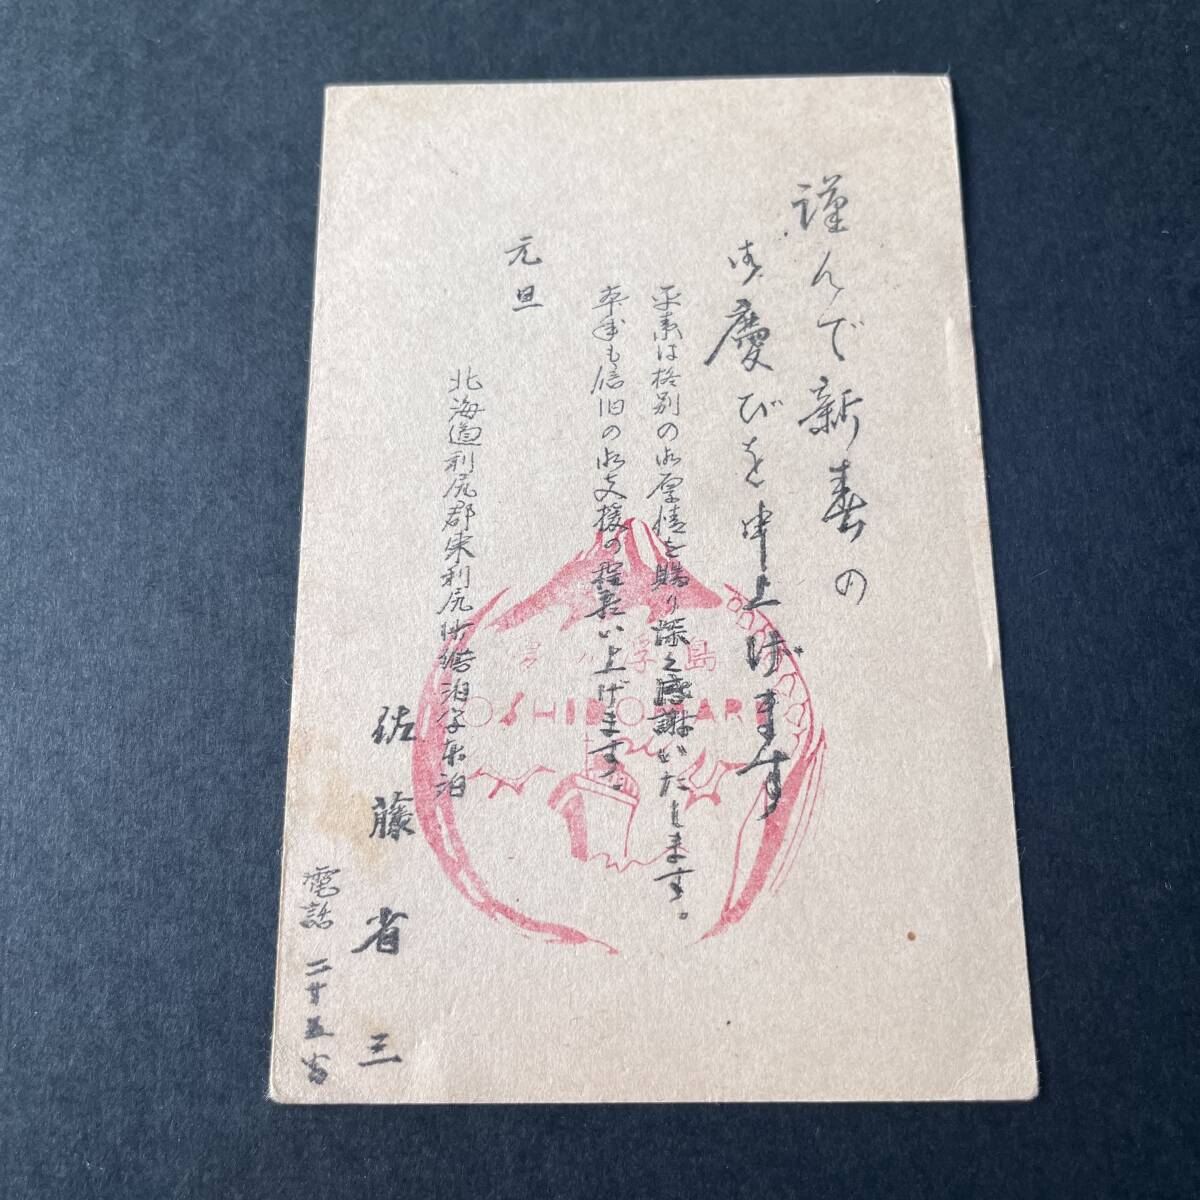 謹んで新春の
御慶びを申上げます
平素は格別の御厚情を賜り深く感謝いたします。
本年も倍旧の御支援の程願い上げます。
元旦
北海道利尻郡東利尻村鴛泊字本泊
佐藤省三
電話 二十五番
島 浮
OSHIDOMARI